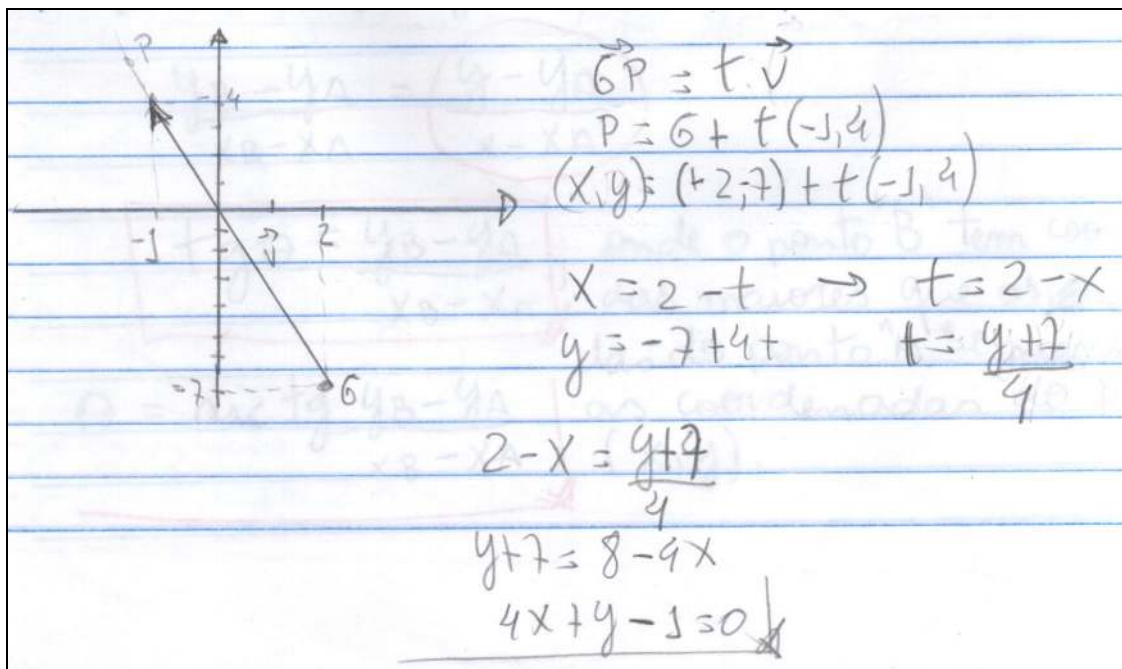 P
4
-1
v⃗
2
-7
G
GP⃗ = t.v⃗
P = G + t(-1,4)
(x,y) = (+2,-7) + t(-1,4)
x = 2 - t → t = 2 - x
y = -7 + 4t t = y+7/4
2 - x = y+7/4
y+7 = 8 - 4x
4x + y - 1 = 0